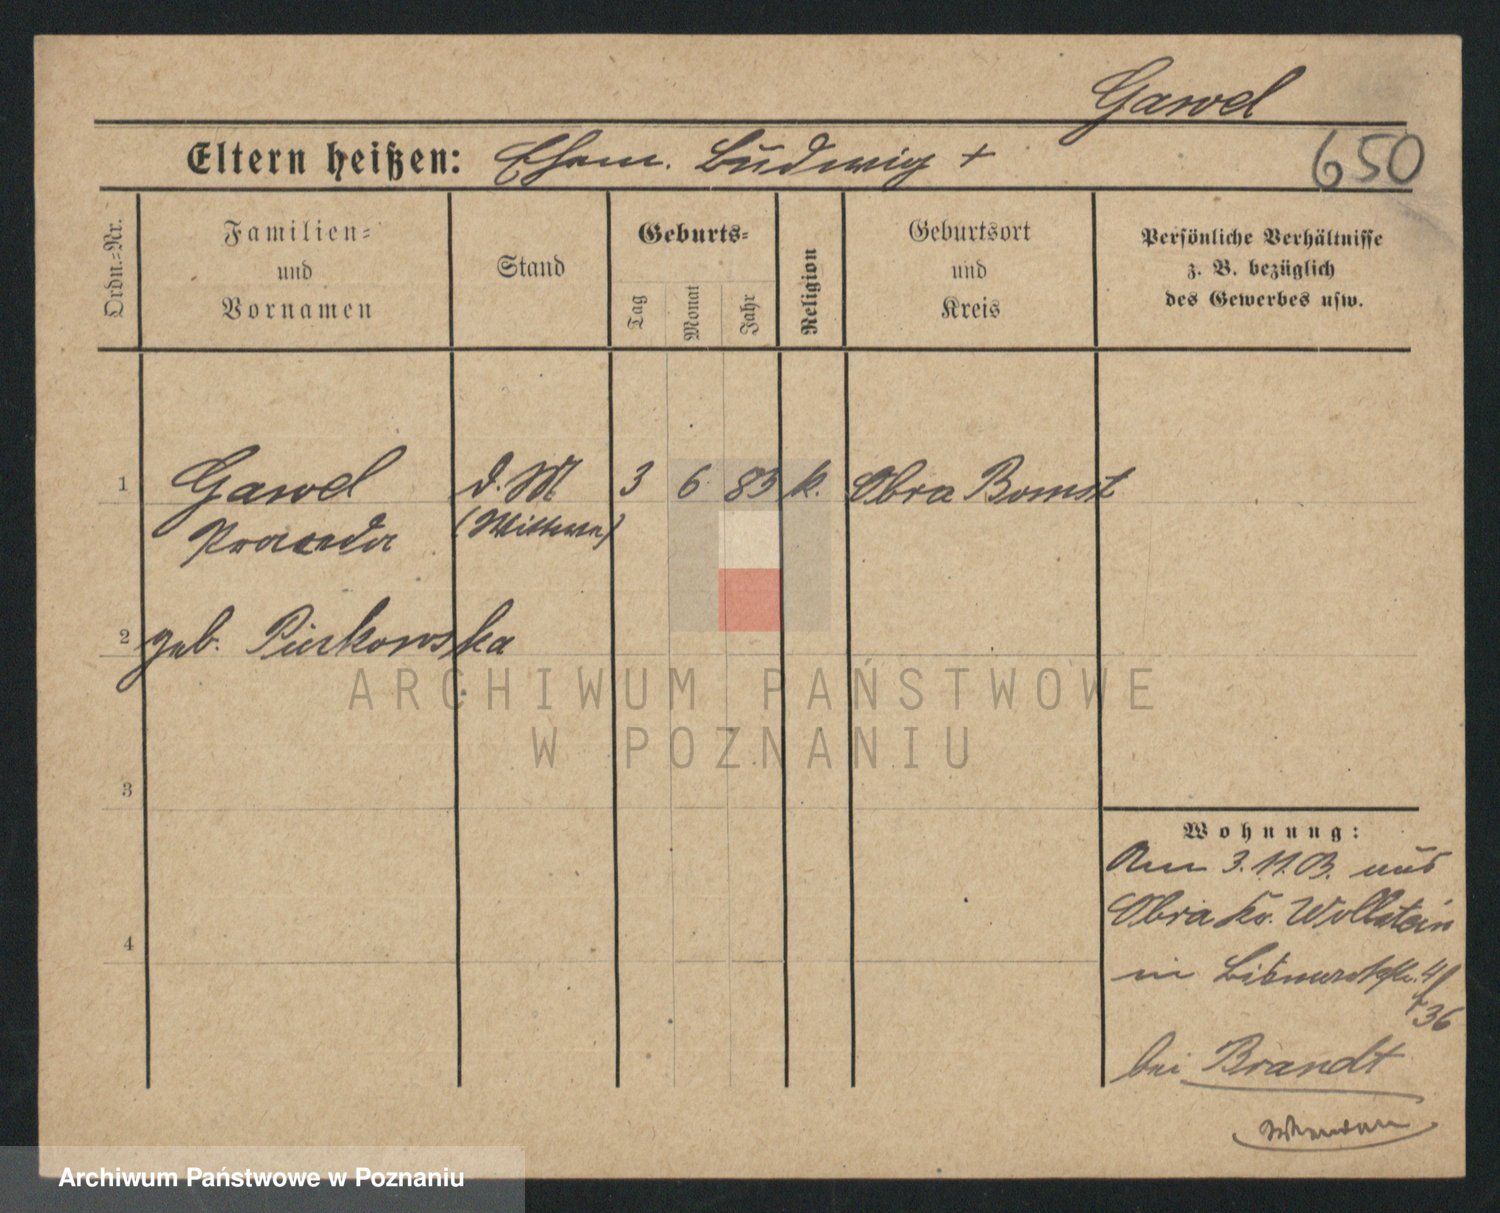 Gawel
650
Eltern heißen: Ehem. Ludwig +
Ordn.-Nr.
Familien-
und
Vornamen
Stand
Geburts-
Tag
Monat
Jahr
Religion
Geburtsort
und
Kreis
Persönliche Verhältnisse
z. B. bezüglich
des Gewerbes usw.
1 Gawel d. M 3 6 83 k. Obra Bomst
(Wittwe)
2 geb. Piekowska
3
4
Wohnung:
Am 3.11.03. aus
Obra Kr. Wollstein
in Bismarckstr. 4
36
bei Brandt
ARCHIWUM PAŃSTWOWE
W POZNANIU
Archiwum Państwowe w Poznaniu